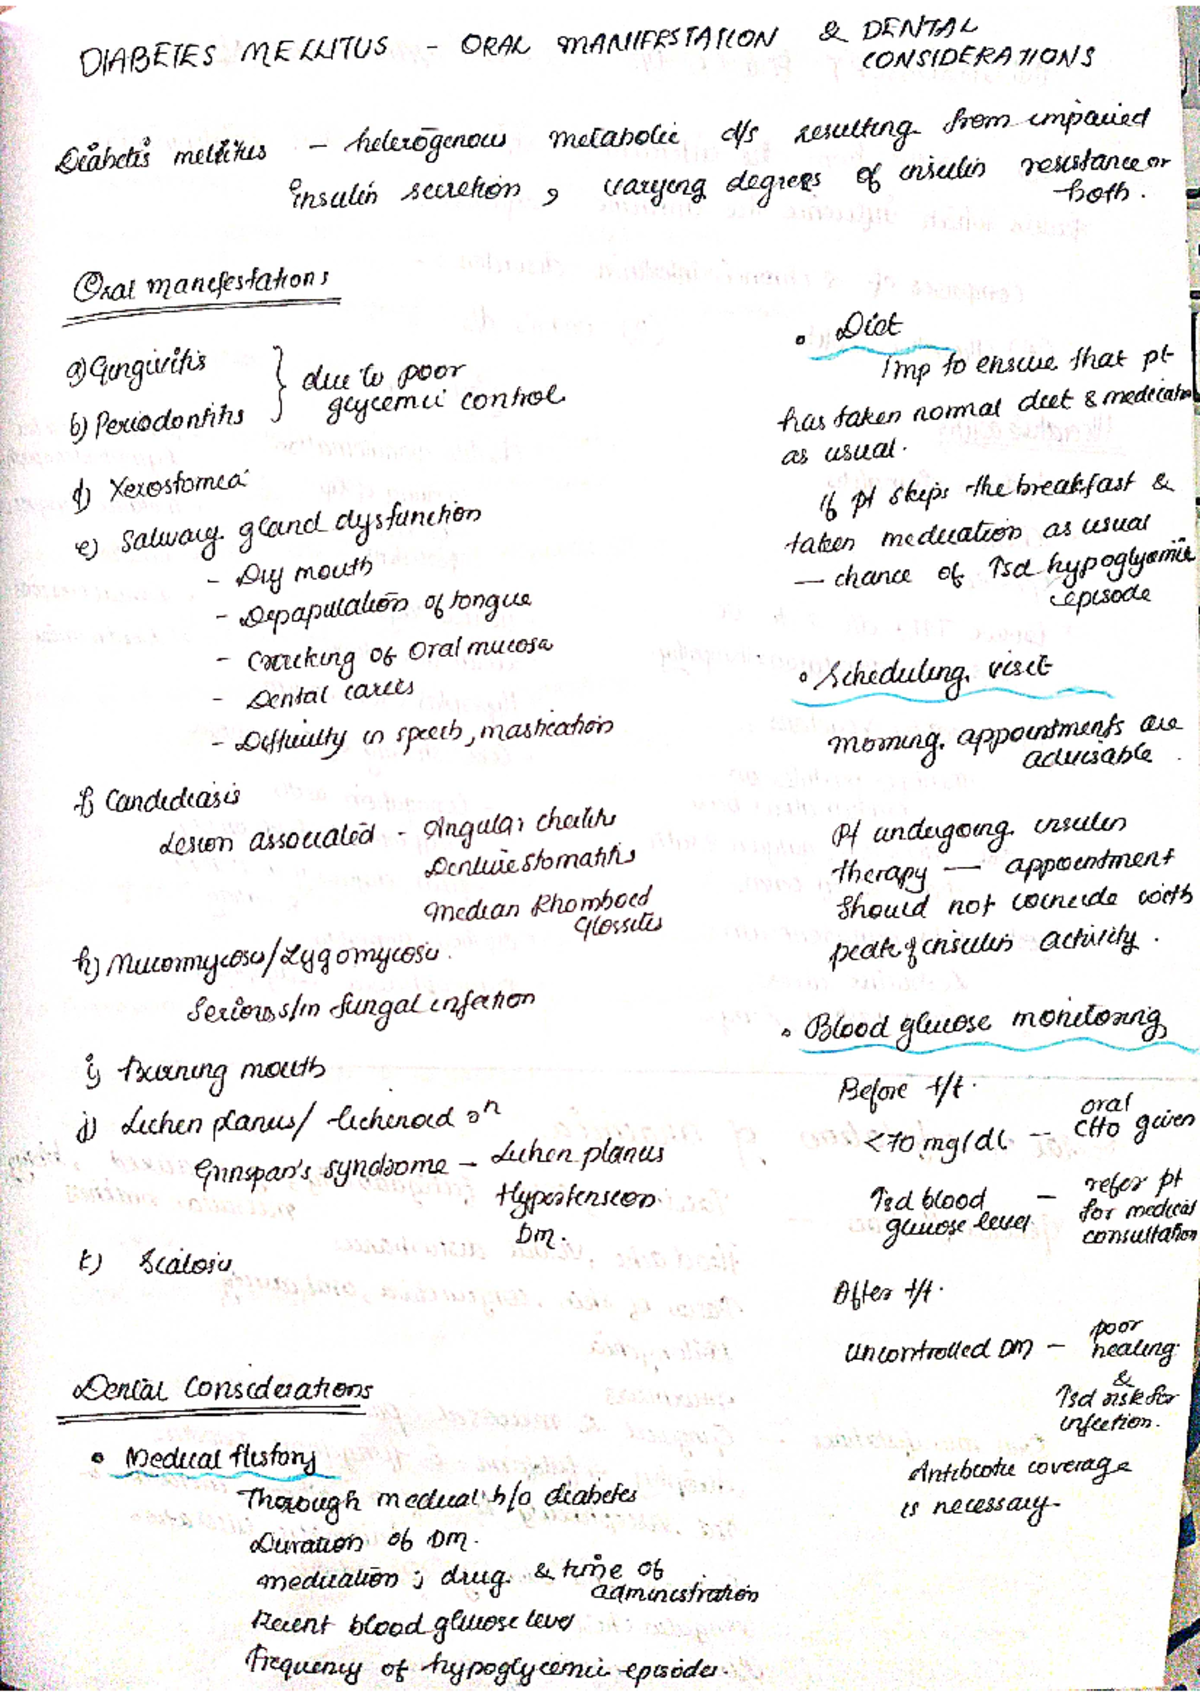 DIABETES MELLITUS - ORAL MANIFESTATION & DENTAL CONSIDERATIONS
Diabetis mellitus - heterogenous metabolic d/s resulting from impaired
insulin secretion, varying degrees of insulin resistance or both.
Oral manifestations
a) Gingivitis
b) Periodontitis
} due to poor
glycemic control
d) Xerostomea
e) Salivary gland dysfunction
- Dry mouth
- Depapulation of tongue
- Cracking of Oral mucosa
- Dental caries
- Difficulty in speech, mastication
f) Candidiasis
Lesion associated - Angular cheilitis
Denture stomatitis
Median Rhomboid
Glossitis
h) Mucormycosis/Zygomycosis.
Serious s/m fungal infection
i) Burning mouth
j) Lichen planus/ lichenoid rn
Grinspan's syndrome - Lichen planus
Hypertension
DM.
k) Sialosis.
Dental Considerations
• Medical History
Thorough medical h/o diabetes
Duration of DM.
medication; drug & time of
administration
Recent blood glucose level
Frequency of hypoglycemic episodes.
• Diet
Imp to ensure that pt
has taken normal diet & medication
as usual.
If pt skips the breakfast &
taken medication as usual
— chance of ↑sd hypoglycemic
episode
• Scheduling visit
morning appointments are
advisable.
Pt undergoing insulin
therapy — appointment
should not coincide with
peak of insulin activity.
• Blood glucose monitoring
Before t/t.
<70 mg/dl - oral
CHO given
↑sd blood
glucose level - refer pt
for medical
consultation
After t/t.
uncontrolled DM - poor
healing
&
↑sd risk for
infection.
Antibiotic coverage
is necessary.